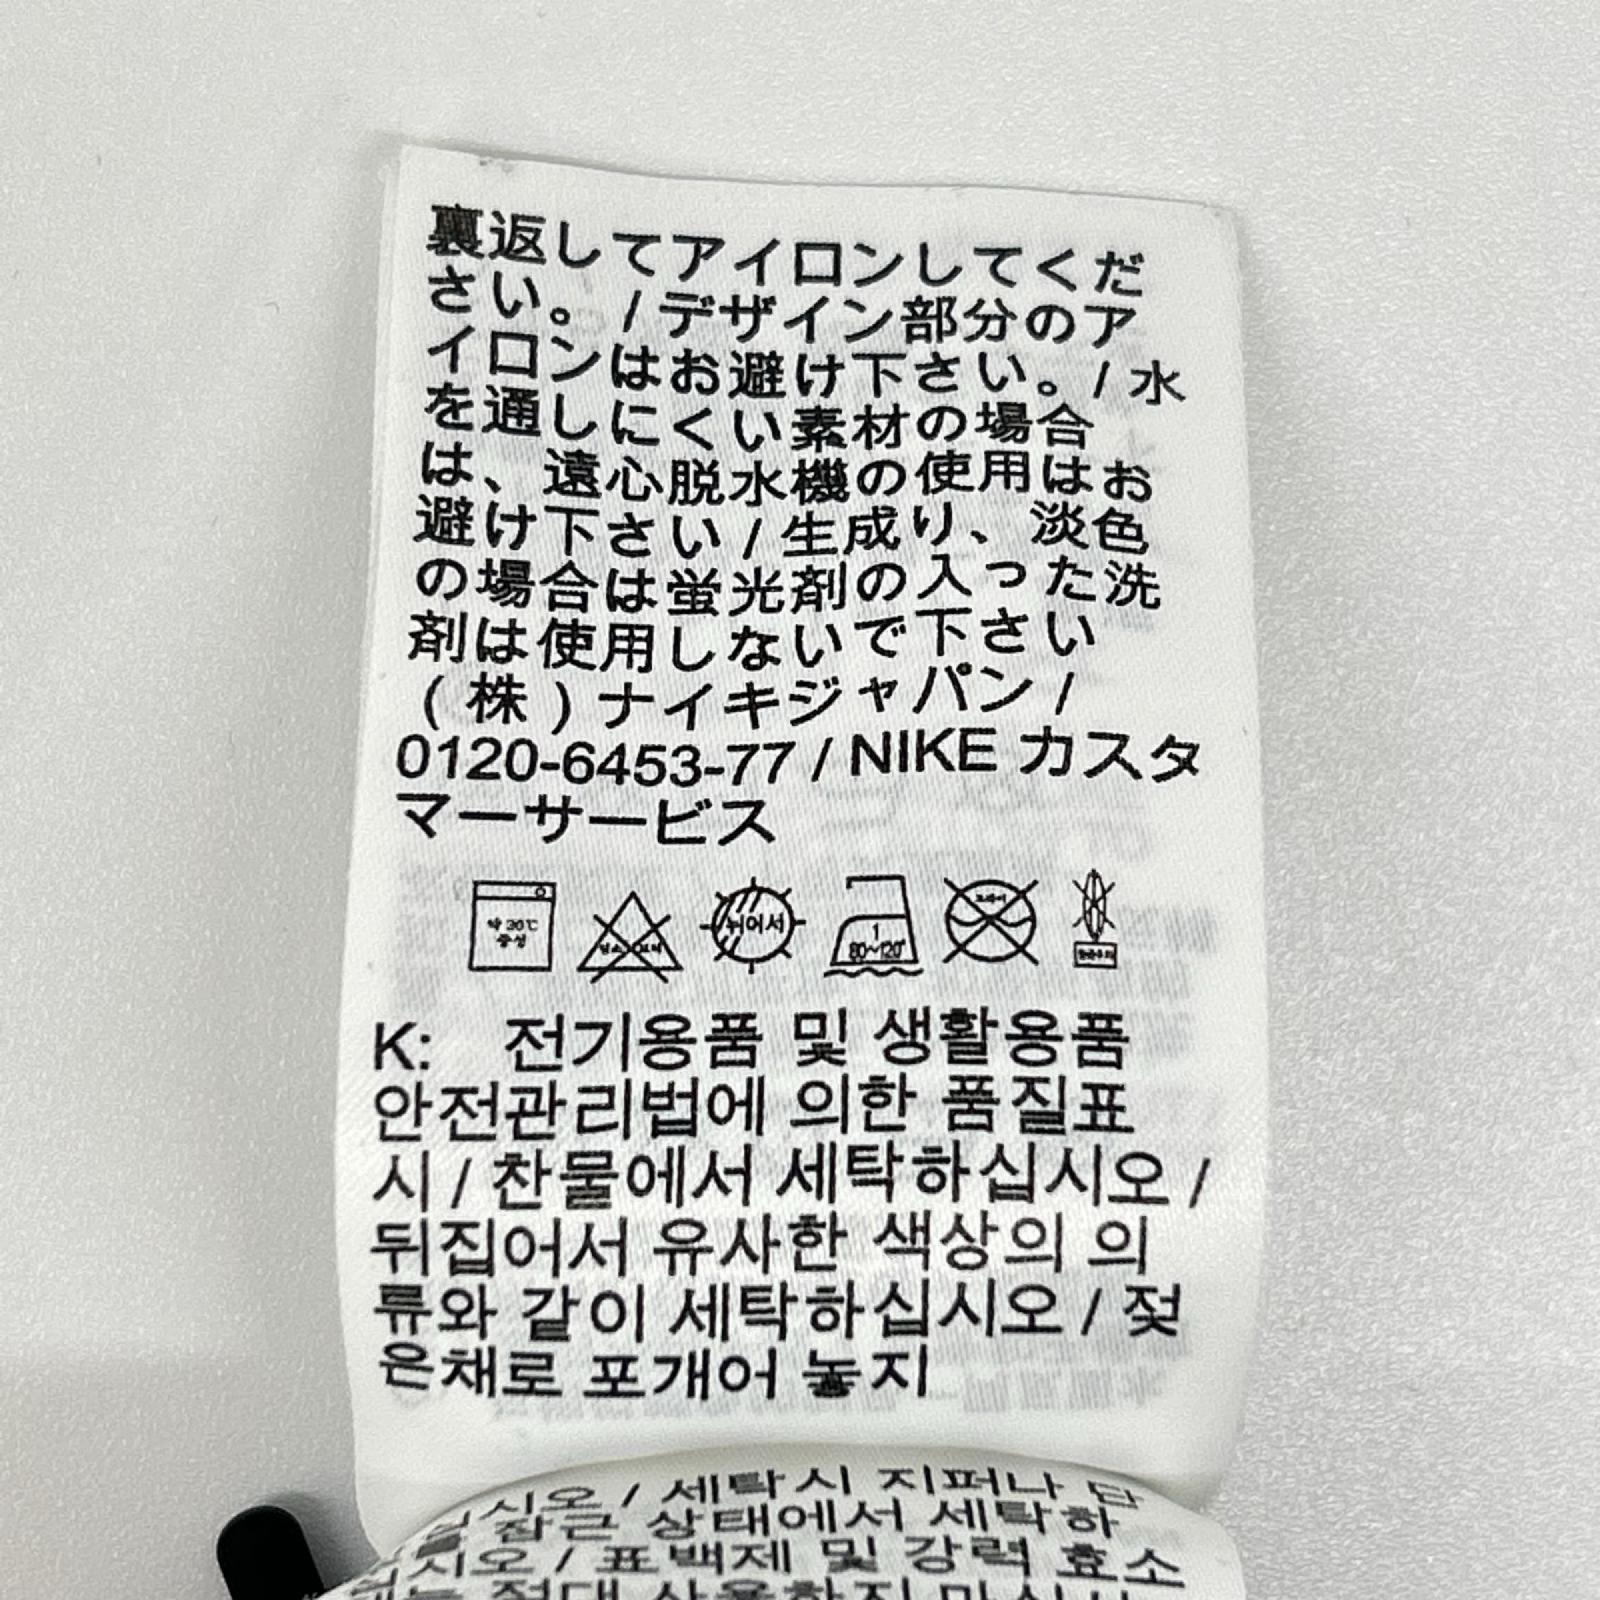 裏返してアイロンしてくだ
さい。/ デザイン部分のア
イロンはお避け下さい。/ 水
を通しにくい素材の場合
は、遠心脱水機の使用はお
避け下さい / 生成り、淡色
の場合は蛍光剤の入った洗
剤は使用しないで下さい
(株)ナイキジャパン /
0120-6453-77 / NIKE カスタ
マーサービス
약 30℃
중성
뉘어서
1
80~120°
드라이
K: 전기용품 및 생활용품
안전관리법에 의한 품질표
시 / 찬물에서 세탁하십시오 /
뒤집어서 유사한 색상의 의
류와 같이 세탁하십시오 / 젖
은채로 포개어 놓지
십시오 / 세탁시 지퍼나 단
잠근 상태에서 세탁하
십시오 / 표백제 및 강력 효소
절대 사용하지 마십시